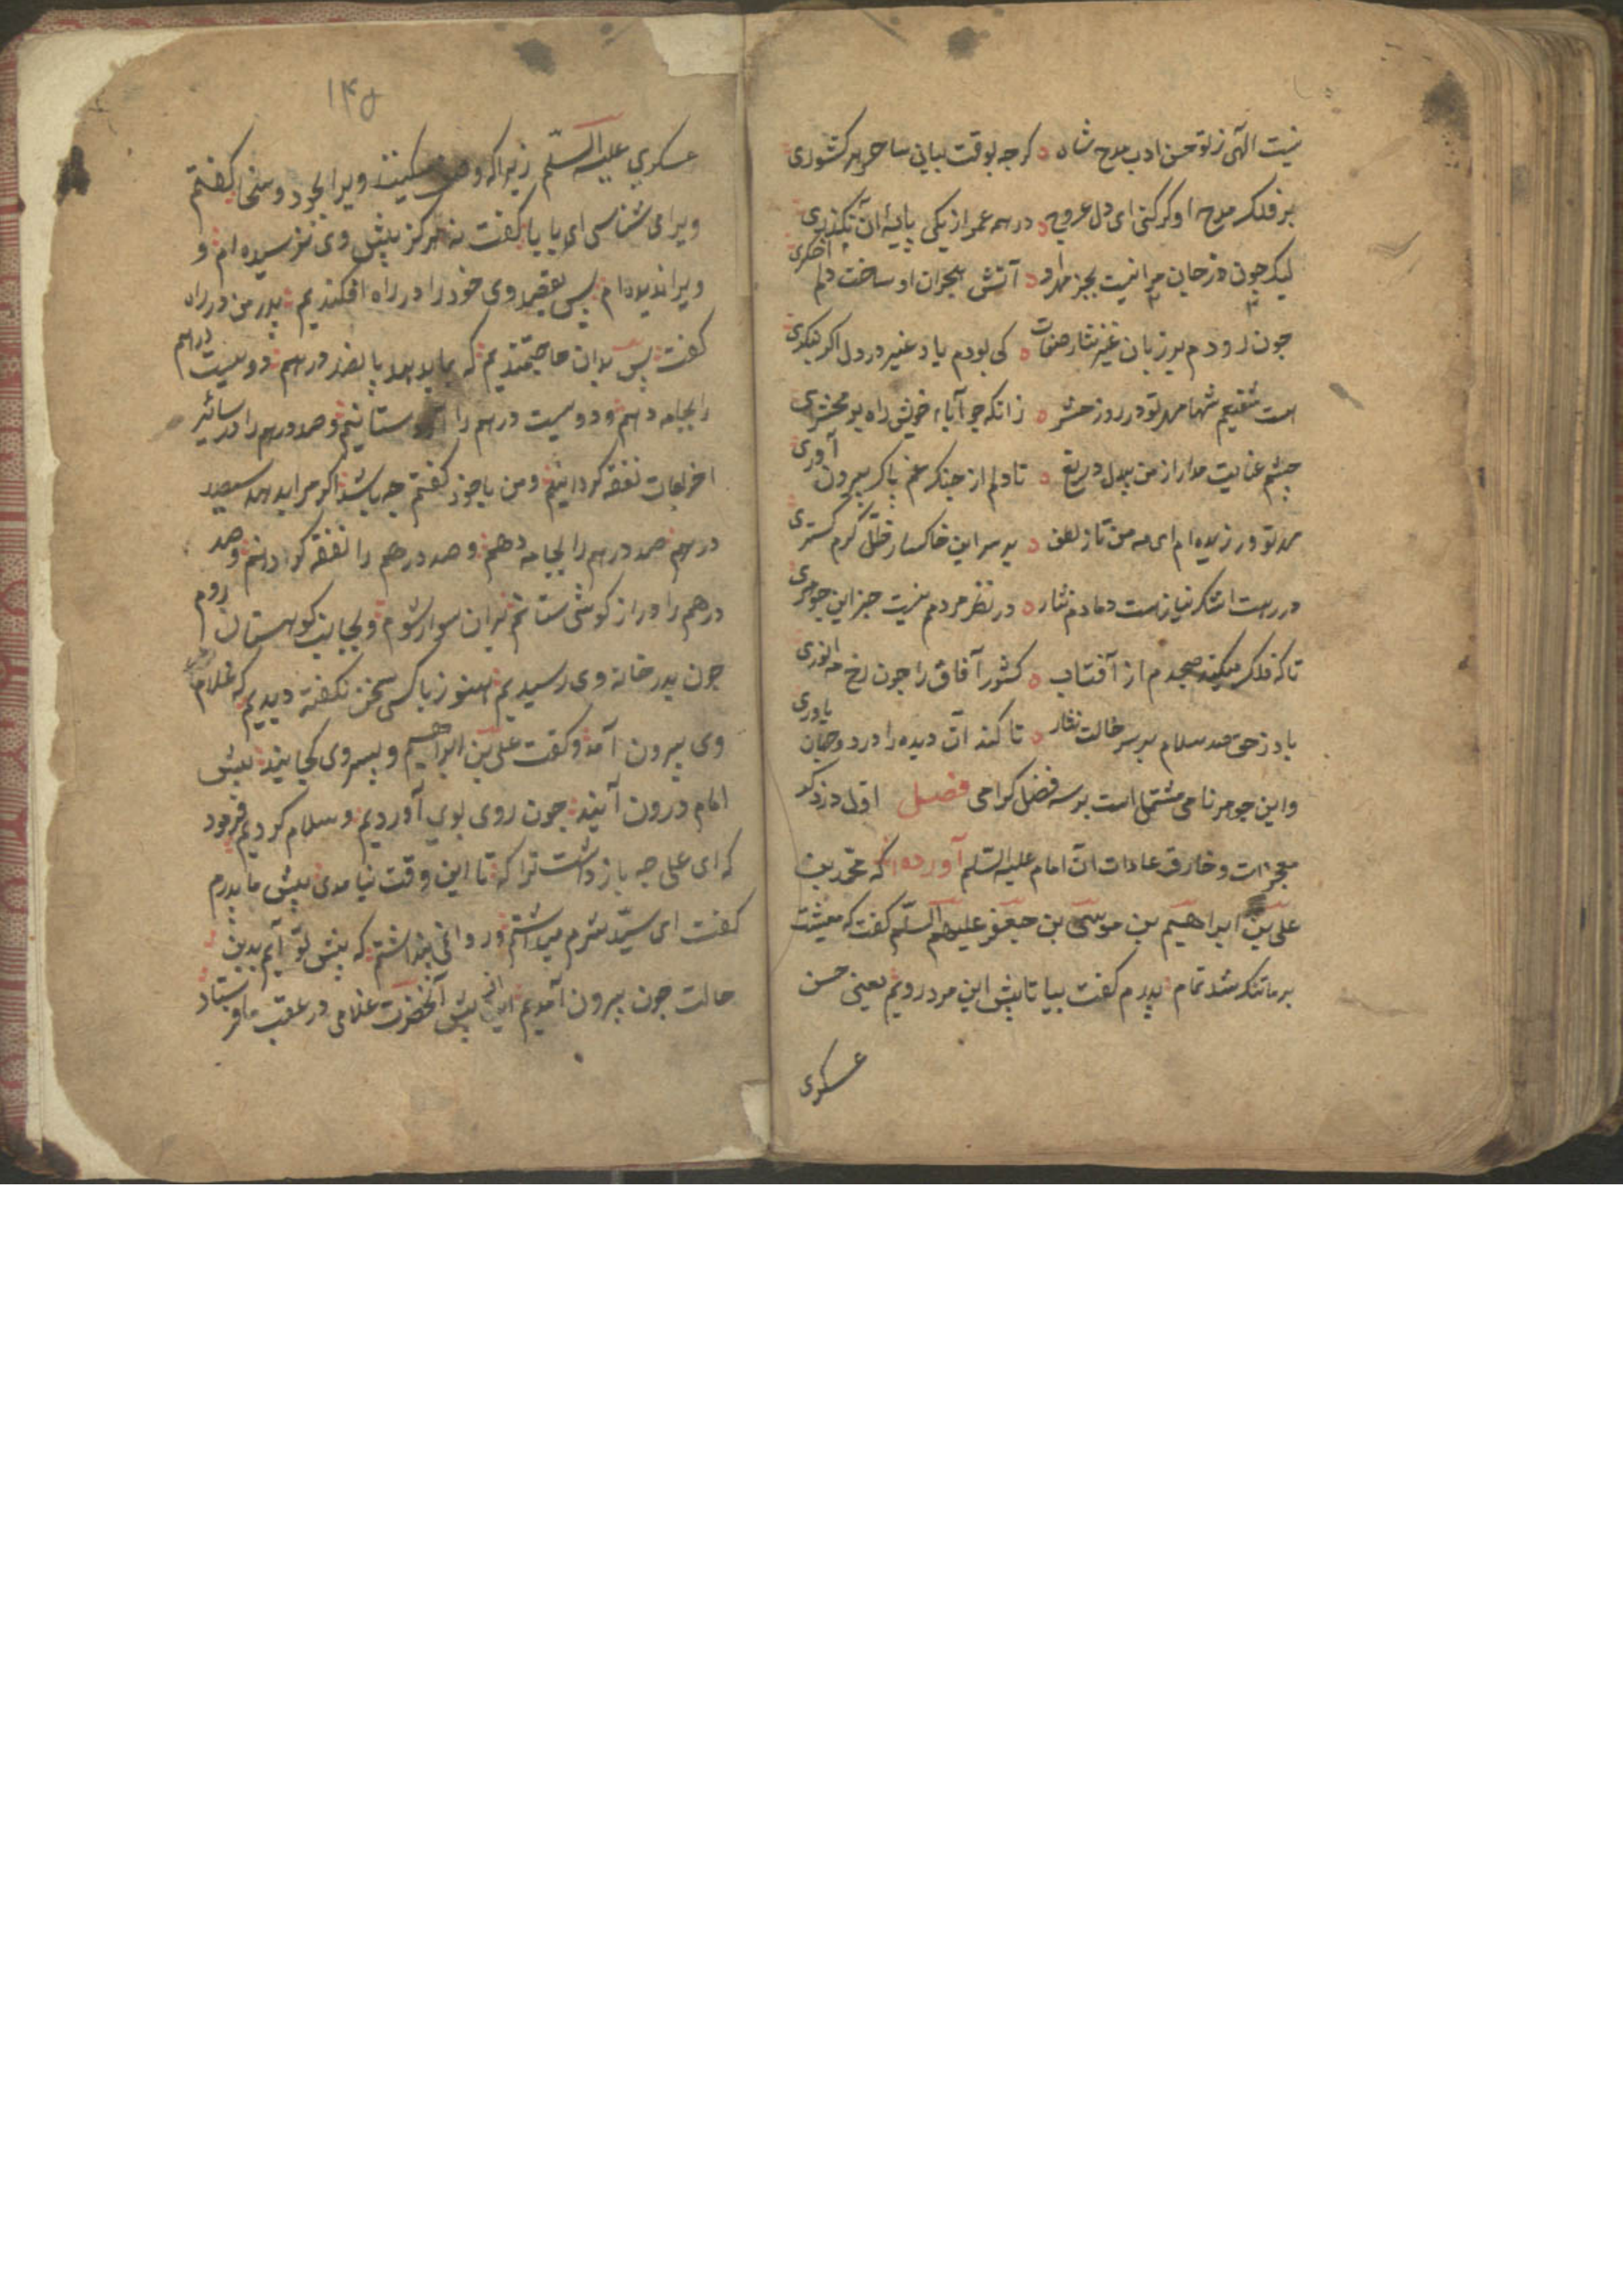 نیست الهی ز تو حسن ادب مدح شاه ه کرجه بوقت بیان ساحر هر کشوری
بر فلک مدح او کر کنی ای دل عروج ه در همه عمر از یکی پایهٔ آن نکذری
لیک جون در جان مرا نیست بجز مهر او ه آتش هجران او ساخت دلم اخکری
جون نرودم بر زبان غیر نثار صفات ه کی بودم یاد غیر در دل اکر بنکری
است شفیعم شها مهر تو در روز حشر ه زانکه جو آباء خویش راه بر محشری
جشم عنایت مدار از من بیدل دریغ ه تا دلم از جنک غم پاک بیرون آوری
مهر تو ورزیده ام ای مه من تا ز لطف ه بر سر این خاکسار ظل کرم کستری
در رهت اشک نیازست دمادم نثار ه در نظر مردمم نیست جز این جوهری
تا که فلک میکند صبحدم از آفتاب ه کشور آفاق را جون رخ مه انوری
باد ز حق صد سلام بر سر خالت نثار ه تا کند آن دیده را در دو جهان یاوری
و این جوهر نامی مشتمل است بر سه فضل کرامی فصل اول در ذکر
معجزات و خارق عادات آن امام علیه السلم آورده اند که محمد بن
علی بن ابراهیم بن موسی بن جعفر علیهم السلم کفت که معیشت
بر ما تنک شد تمام پدرم کفت بیا تا پیش این مرد رویم یعنی حسن
عسکری
۱۴۵
عسکری علیه السلم زیرا که وصف میکنند ویرا بجود و سخا کفتم
ویرا می شناسی ای بابا کفت نه هرکز پیش وی نرسیده ام و
ویرا ندیده ام پس بقصد وی خود را در راه افکندیم پدر من در راه
کفت پس بدان حاجتمندیم که بما بدهد پانصد درهم دویست درهم
را بجامه دهم و دویست درهم را آرد ستانیم و صد درهم را در سائر
اخراجات نفقه کردانیم و من با خود کفتم جه باشد اکر مرا بدهد سیصد
درهم صد درهم را بجامه دهم و صد درهم را نفقه کردانم و صد
درهم را درازکوشی ستانم بران سوار شوم و بجانب کوهستان روم
جون بدر خانه وی رسیدیم هنوز با کسی سخن نکفته دیدیم که غلام
وی بیرون آمد و کفت علی بن ابراهیم و پسر وی کجایند پیش
امام درون آیند جون روی بوی آوردیم و سلام کردیم فرمود
که ای علی جه باز داشت ترا که تا این وقت نیامدی پیش ما پدرم
کفت ای سید شرم میداشتم و روا نمی داشتم که پیش تو آیم بدین
حالت جون بیرون آمدیم از پیش آنحضرت غلامی در عقب ما فرستاد